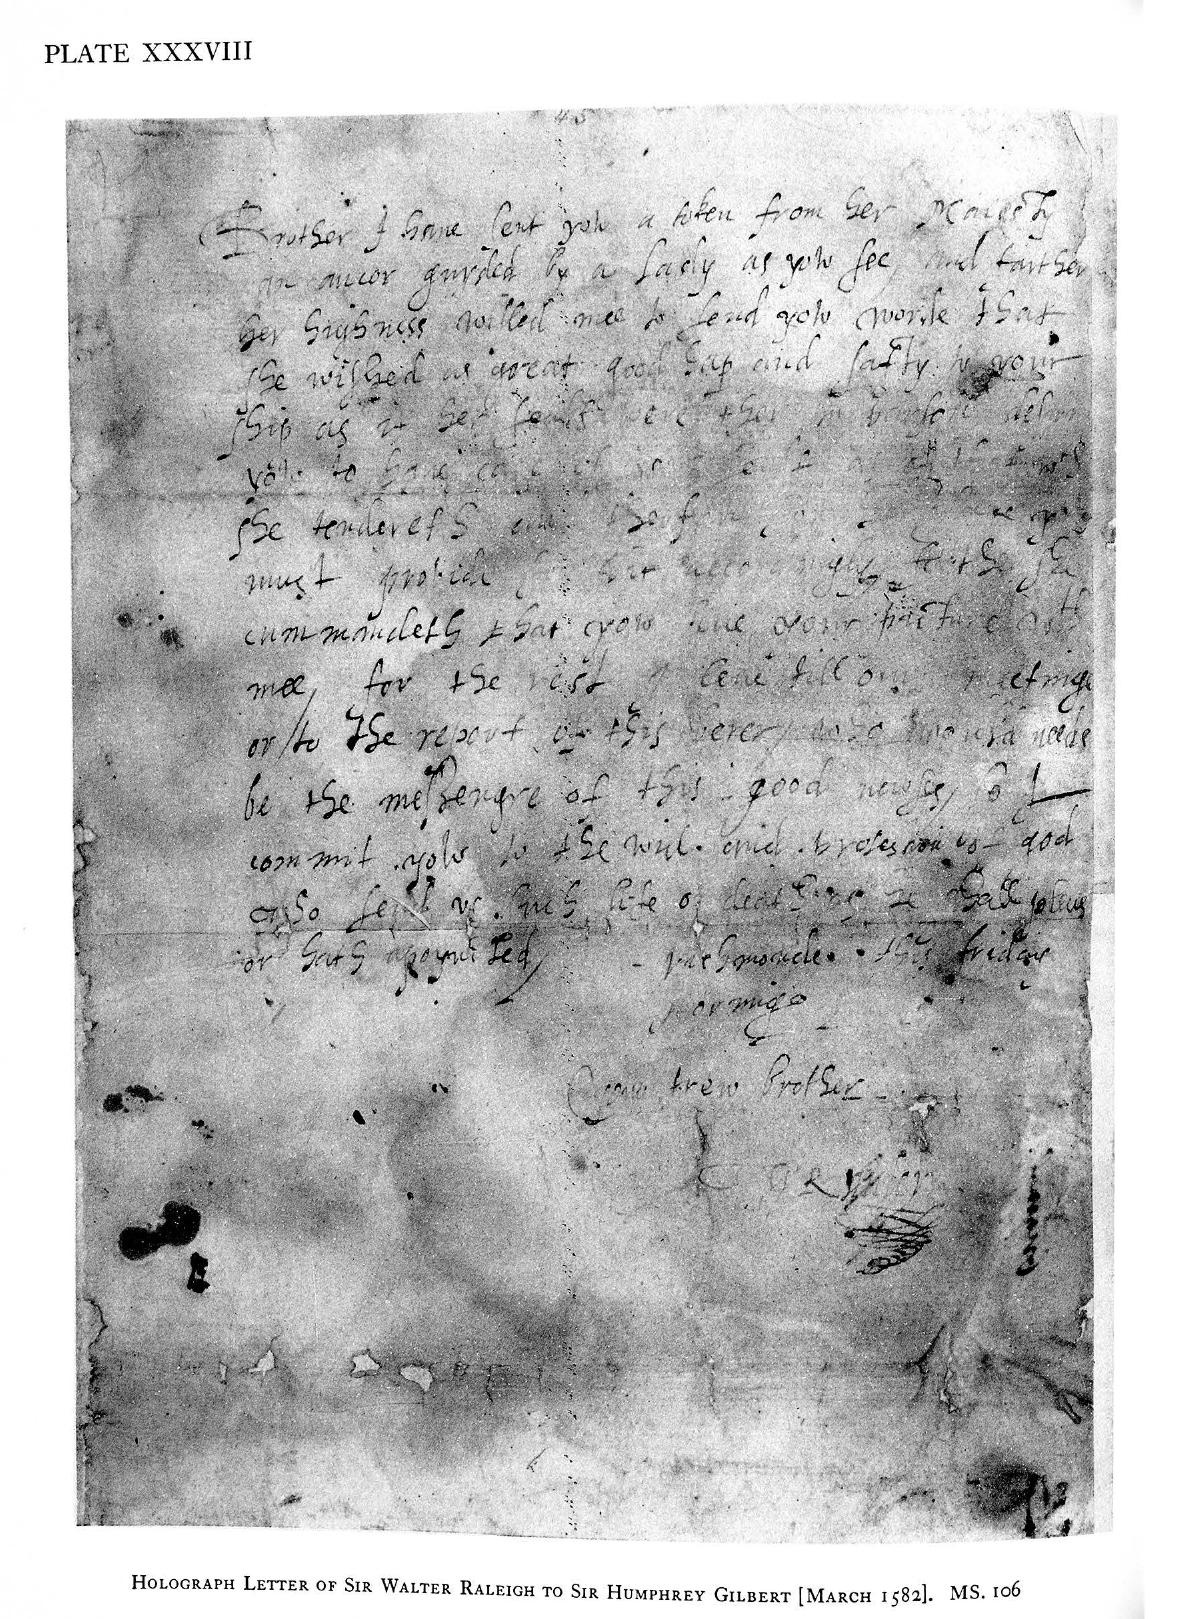 PLATE XXXVIII
45
Brother I have sent yow a token from her Maiesty
an ancor guyded by a Lady as yow see and farther
her highness willed mee to send yow worde that
she wished as great good hap and safty to your
ship as if her sealf were ther in
yow to have care of
she tendereth and
must provide for hit accordingly, farther she
cummandeth that yow leve your picture with
mee, for the rest I leve till our meetinge
or to the report of this berer who would needs
be the messengre of this good newse, so I
commit yow to the will and protection of god
who send us such life or death as he shall please
or hath apoynted, richmonde this friday
morning
Your trew Brother
W Rauley
HOLOGRAPH LETTER OF SIR WALTER RALEIGH TO SIR HUMPHREY GILBERT [MARCH 1582]. MS. 106